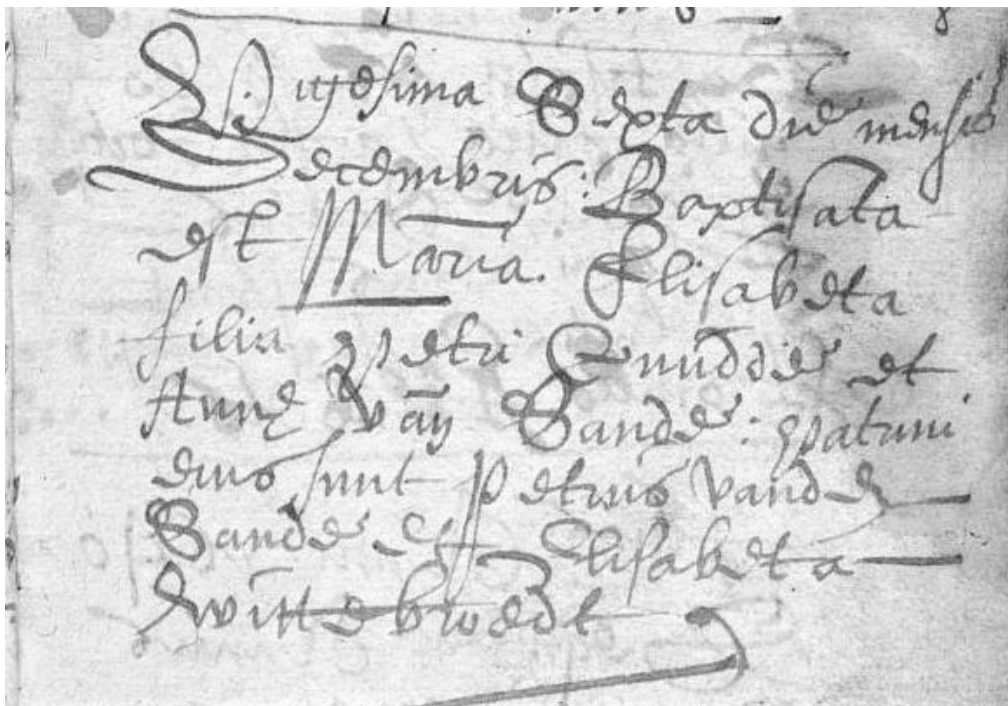 Vigesima Sexta die mensis
Decembris: Baptisata
est Maria Elisabeta
filia Petri et
Annę Van Sande: patrini
eius sunt Petrus vande
Sande et Elisabeta
wittebroodt